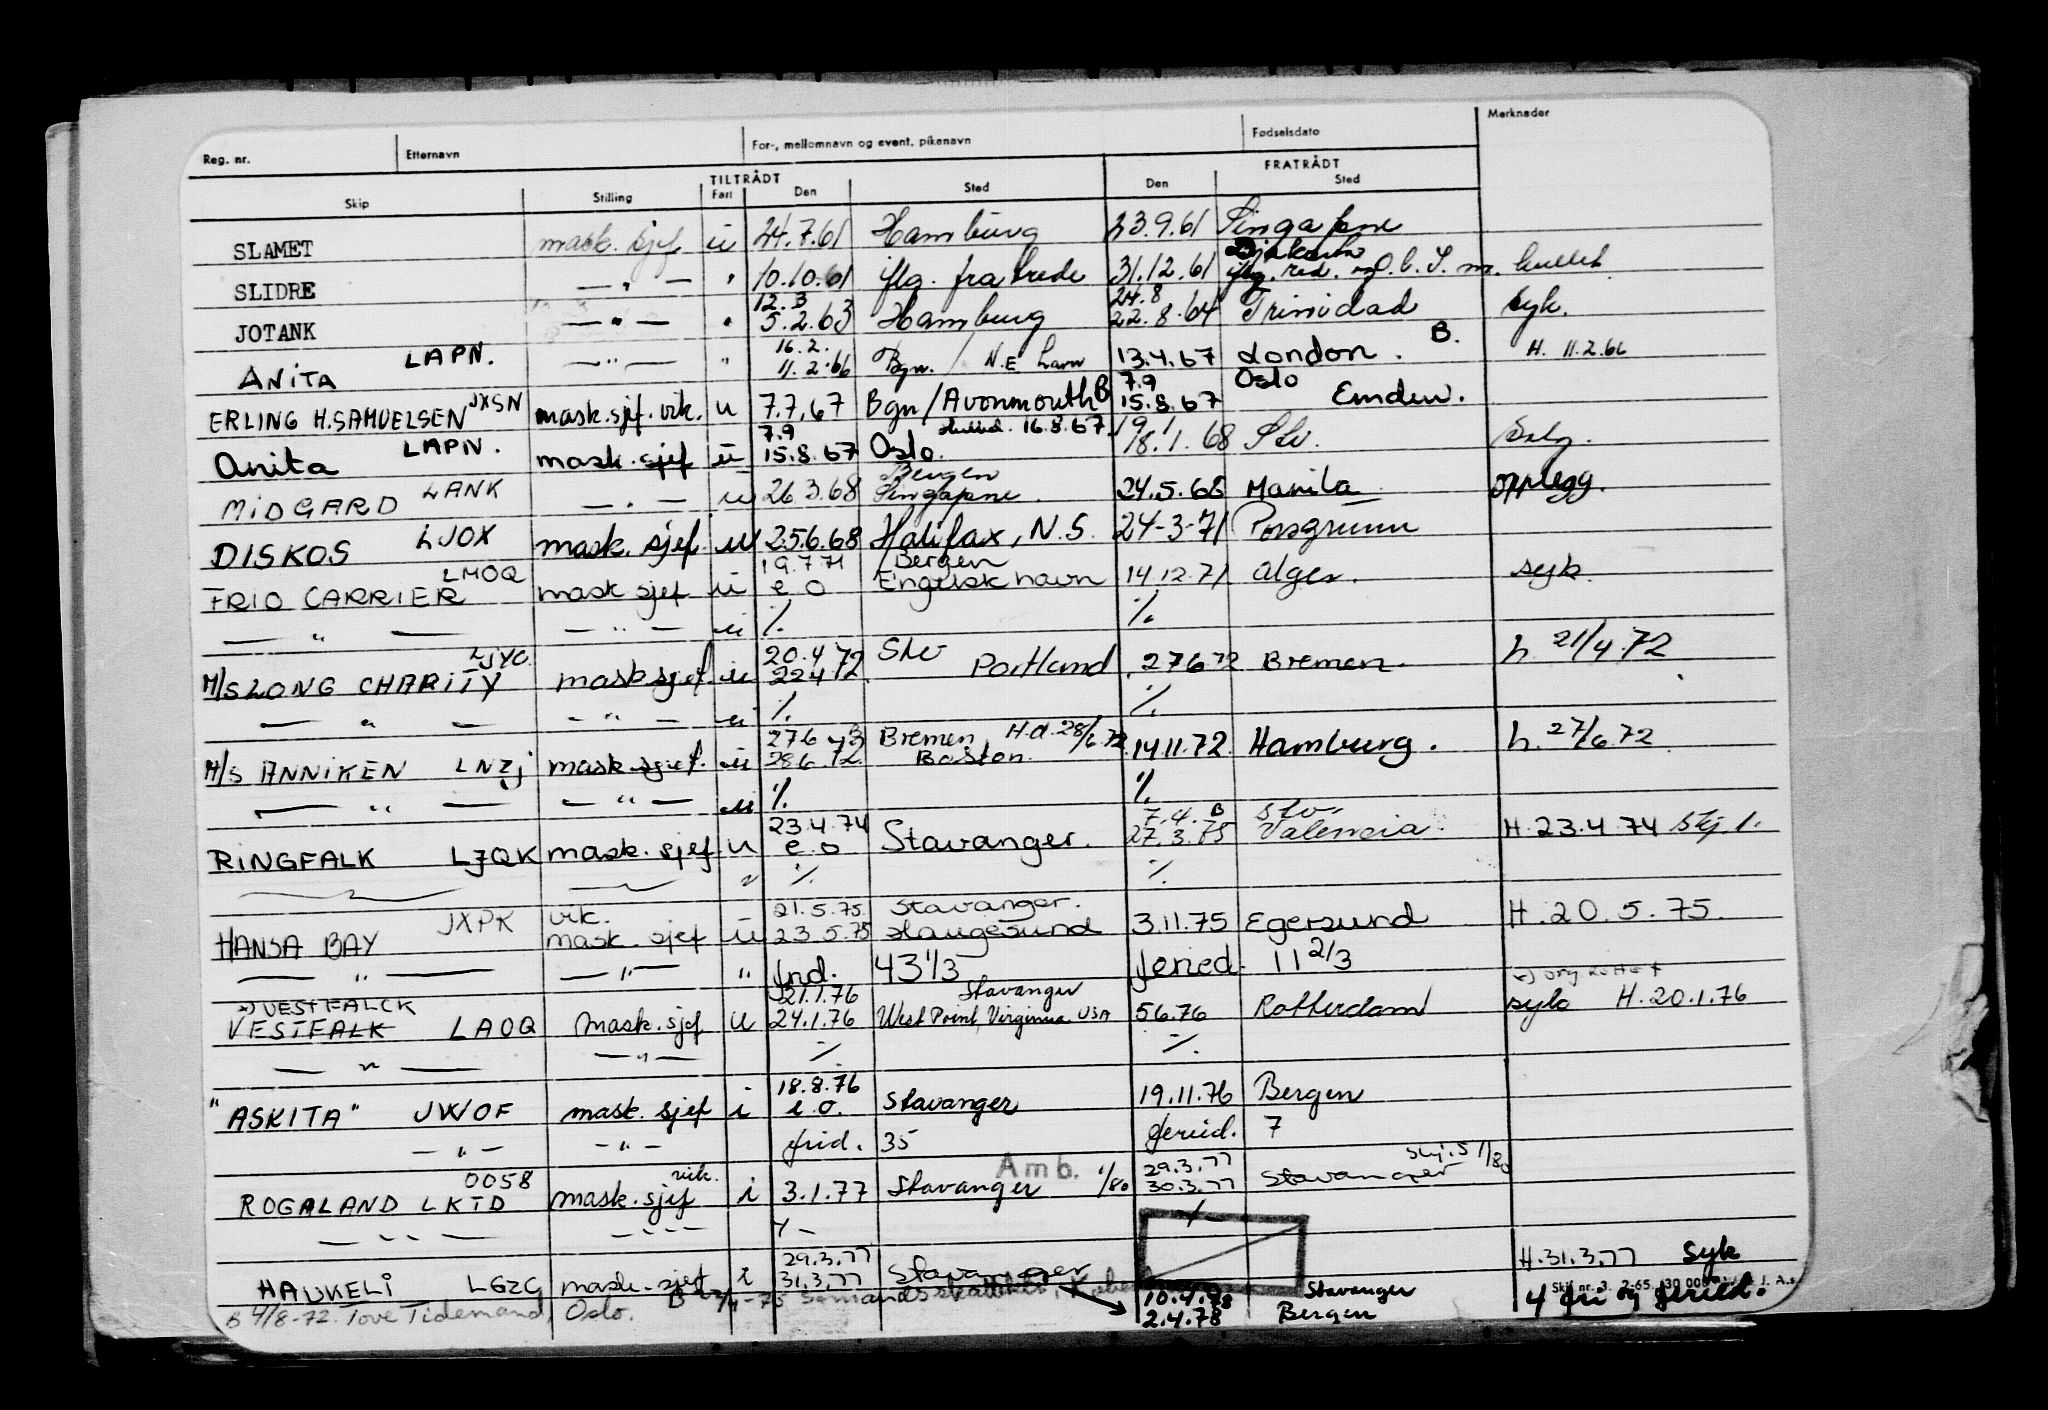 Reg. nr. Etternavn For-, mellomnavn og event. pikenavn Fødselsdato Merknader
TILTRÅDT FRATRÅDT
Skip Stilling Fart Den Sted Den Sted
SLAMET mask. sjef u 24.7.61 Hamburg 23.9.61 Singapore
Djakarta
SLIDRE — " — " 10.10.61 iflg. fra brede 31.12.61 iflg. red.
12.3 24.8
JOTANK — " — " 5.2.63 Hamburg 22.8.64 Trinidad Syk.
16.2. B.
ANITA LAPN. — " — " 11.2.66 Bgn. / N.E havn 13.4.67 London. H. 11.2.66
7.9 Oslo
ERLING H. SAMUELSEN JXSN mask. sjef. vik. u 7.7.67 Bgn/Avonmouth B 15.8.67 Emden.
7.9 16.8.67 19.1
Anita LAPN. mask. sjef u 15.8.67 Oslo. 18.1.68 Stv. Salg.
Bergen
MIDGARD LANK — " — u 26.3.68 Singapore. 24.5.68 Manila opplegg.
DISKOS LJOX mask. sjef. u 25.6.68 Halifax, N.S. 24-3-71 Porsgrunn
19.7.71 Bergen
FRIO CARRIER LMOQ mask sjef u e o Engelsk havn 14.12.71 Alger. syk.
— " — — " — u ./. ./.
20.4.72 Stv
M/S LONG CHARITY LJYC mask sjef. u 22.4.72. Portland. 27.6.72 Bremen. h. 21/4.72
— " — — " — u ./. ./.
27.6.72 Bremen H.d. 28/6.72
M/S ANNIKEN LNZJ mask. sjef. u 28.6.72 Boston. 14.11.72. Hamburg. h. 27/6.72
— " — — " — u ./. ./.
23.4.74 7.4. B Stv.
RINGFALK LJQK mask. sjef u e. o Stavanger. 27.3.75 Valencia. H. 23.4.74 Skj. 1.
— " — " ./. ./.
vik. 21.5.75. Stavanger.
HANSA BAY JXPK mask. sjef u 23.5.75 Haugesund 3.11.75 Egersund H. 20.5.75.
— " — — " — " frid. 43 1/3 feried. 11 2/3
x) VESTFALCK 21.1.76 Stavanger
VESTFALK LAOQ Mask. sjef u 24.1.76 West Point, Virginia USA 5.6.76 Rotterdam syk H. 20.1.76
— " — — " — ./. ./.
18.8.76
"ASKITA" JWOF mask. sjef i e. o. Stavanger 19.11.76 Bergen
— " — — " — frid. 35 feried. 7
0058 vik. Amb. 29.3.77 Skj. 5 1/80
ROGALAND LKTD mask. sjef i 3.1.77 Stavanger 1/80 30.3.77 Stavanger
— " — — " — ./. ./.
29.3.77 H. 31.3.77 Syk
HAUKELI LGZC mask. sjef i 31.3.77 Stavanger 10.4.78 Stavanger 4 fri og feried.
B 4/8-72. Tove Tidemand, Oslo. 2.4.78 Bergen